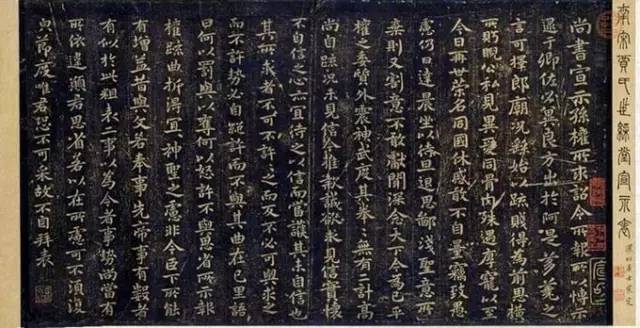 南宋賈氏世綵堂宣示表
尚書宣示孫權所求詔令所報所以博示
逮于卿佐必冀良方出於阿是芻蕘之
言可擇郎廟況繇始以疏賤得為前恩橫
所眄睨公私見異愛同骨肉殊遇厚寵以至
今日再世榮名同國休慼敢不自量竊致愚
慮仍日達晨坐以待旦退思鄙淺聖意所
棄則又割意不敢獻聞深念天下今為已平
權之委質外震神武度其拳〻無有二計高
尚自疏況未見信今推款誠欲求見信實懷
不自信之心亦宜待之以信而當護其未自信也
其所求者不可不許許之而反不必可與求之
而不許勢必自絕許而不與其曲在己里語
曰何以罰與以奪何以怒許不與思省所示報
權疏曲折得宜〻神聖之慮非今臣下所能
有增益昔與文若奉事先帝事有數者
有似於此粗表二事以為今者事勢尚當有
所依違願君思省若以在所慮可不須復
節度唯君恐不可采故不自拜表